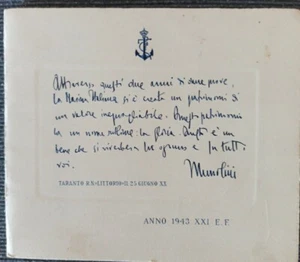 Attraverso questi due anni di dure prove,
la Marina Italiana si è creata un patrimonio di
un valore ineguagliabile. Questo patrimonio
ha un nome sublime: la gloria. Questo è un
bene che si ricorderà per sempre e in tutti
voi.
Mussolini
TARANTO R.N. LITTORIO 25 GIUGNO XX
ANNO 1943 XXI E. F.